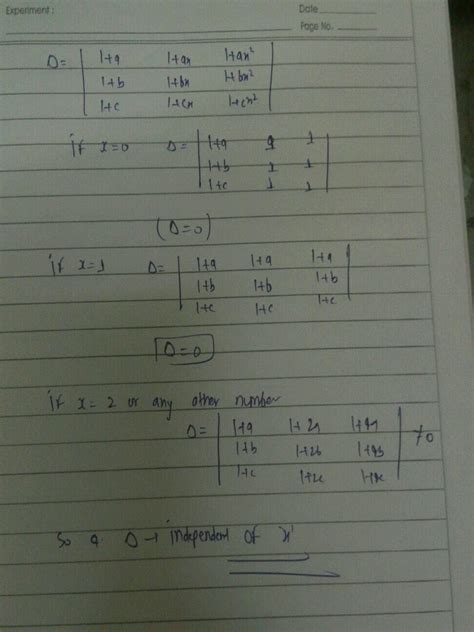 Experiment :
Date
Page No.
Δ = | 1+a 1+ax 1+ax²
1+b 1+bx 1+bx²
1+c 1+cx 1+cx² |
if x=0 Δ = | 1+a 1 1
1+b 1 1
1+c 1 1 |
(Δ=0)
if x=1 Δ= | 1+a 1+a 1+a
1+b 1+b 1+b
1+c 1+c 1+c |
Δ=0
if x= 2 or any other number
Δ= | 1+a 1+2a 1+4a
1+b 1+2b 1+4b
1+c 1+2c 1+4c | ≠0
So Δ → independent of 'x'